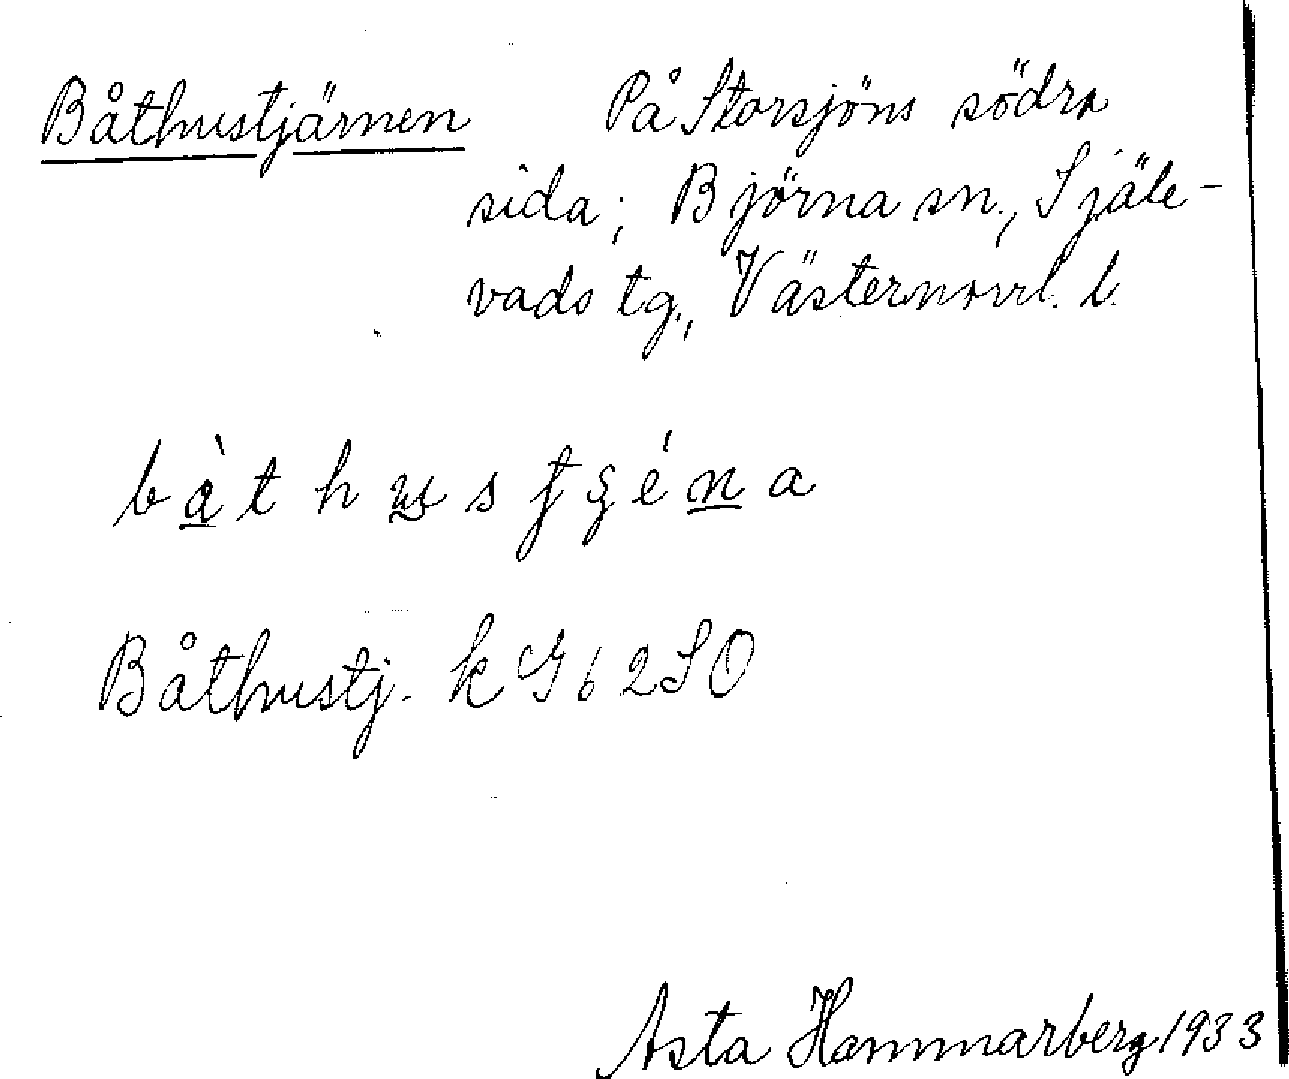 Båthustjärnen På Storsjöns södra
sida; Björna sn., Själe-
vads tg., Västernorrl. l.
bàthus
Båthustj. k G 62 SO
Asta Hammarberg 1933